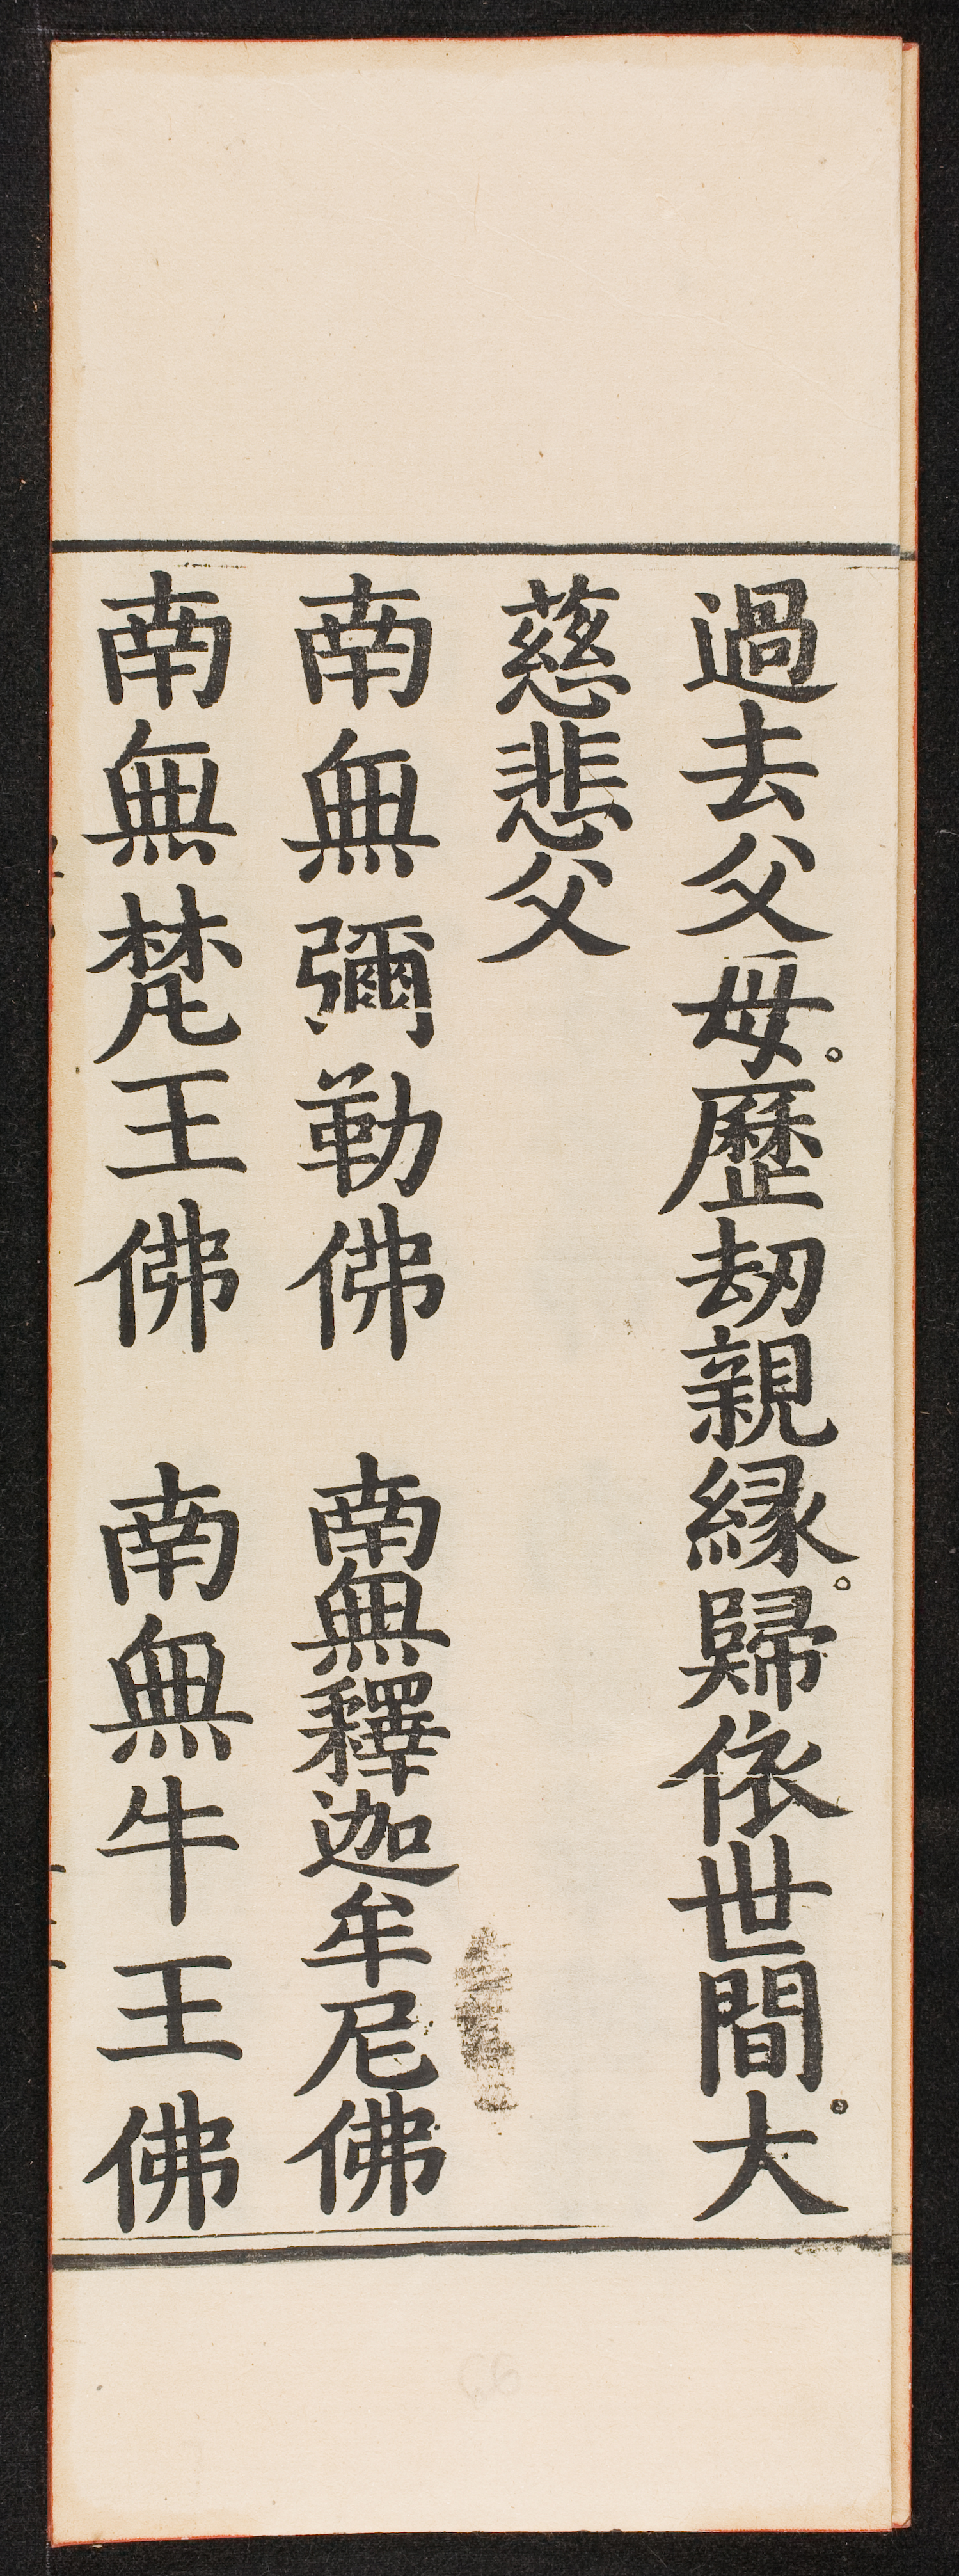 過去父母。歷劫親緣。歸依世間。大
慈悲父
南無彌勒佛　南無釋迦牟尼佛
南無梵王佛　南無牛王佛